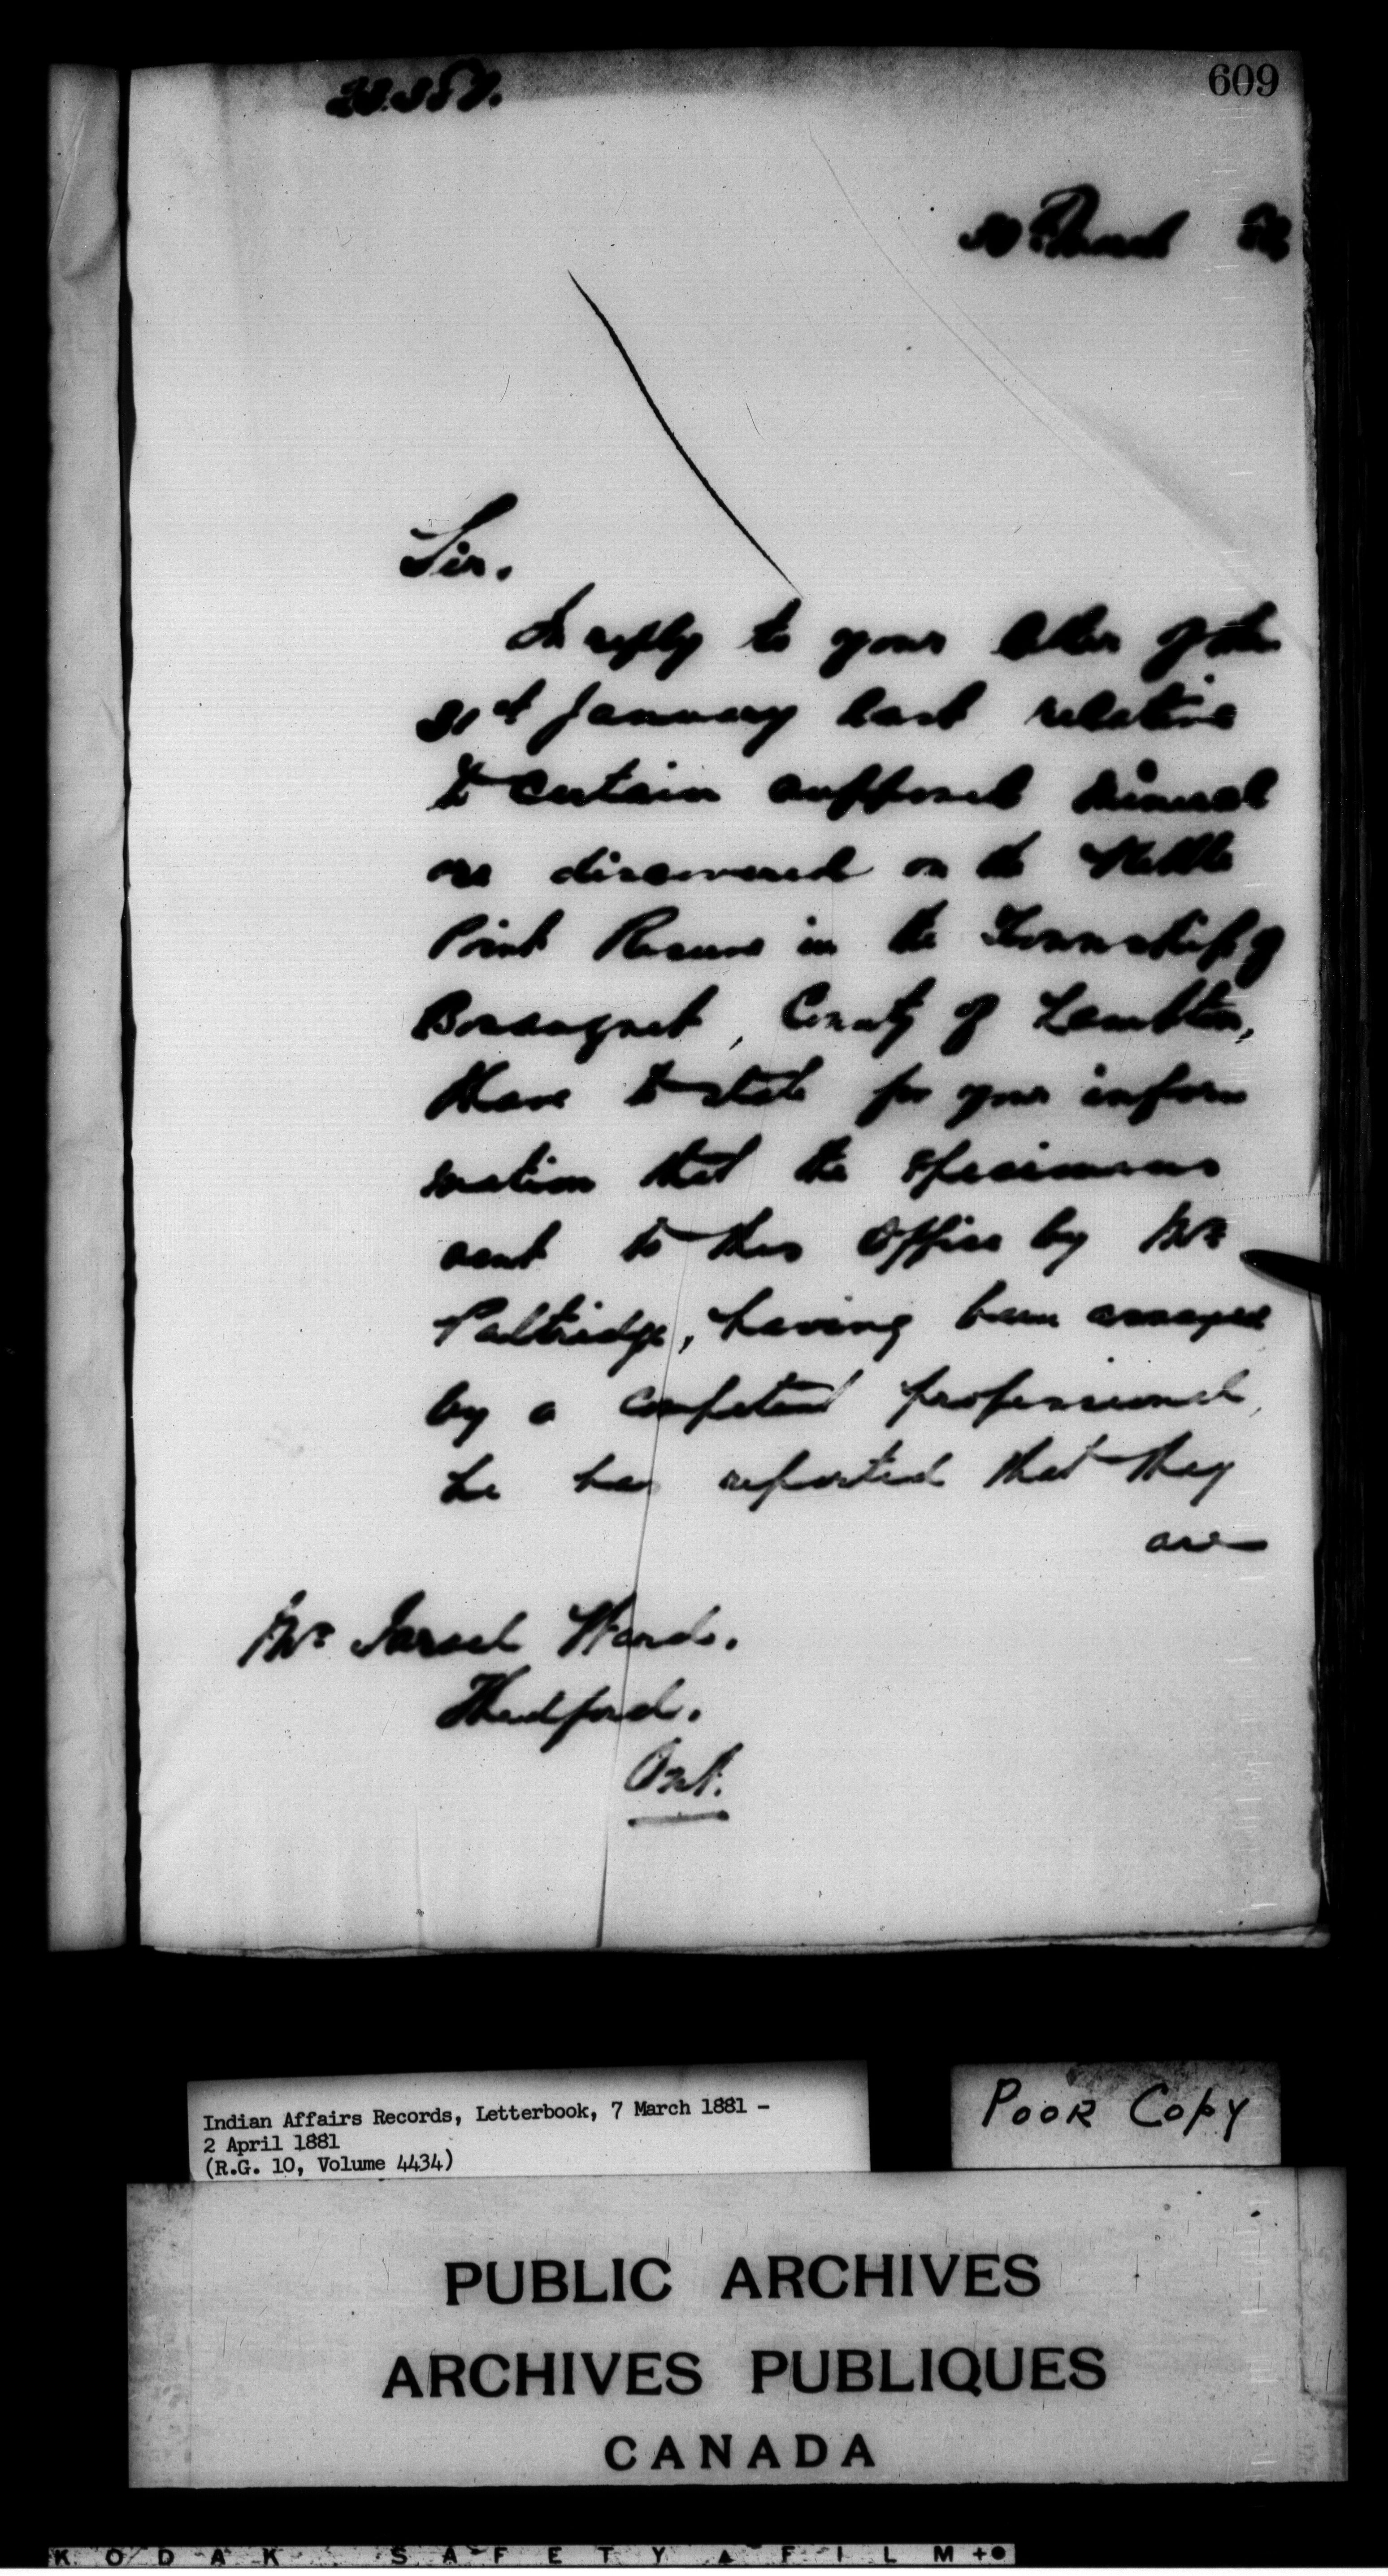 609
March
Sir.
In reply to your letter of the
31st January last relative
to certain supposed mineral
ore discovered on the Kettle
Point Reserve in the Township of
Bosanquet, County of Lambton,
I have to state for your infor
mation that the specimens
sent to this Office by Mr
Paltridge, having been assayed
by a competent professional,
he has reported that they
are
Mr Israel Wards.
Thedford.
Ont.
Indian Affairs Records, Letterbook, 7 March 1881 -
2 April 1881
(R.G. 10, Volume 4434)
POOR COPY
PUBLIC ARCHIVES
ARCHIVES PUBLIQUES
CANADA
KODAK SAFETY FILM